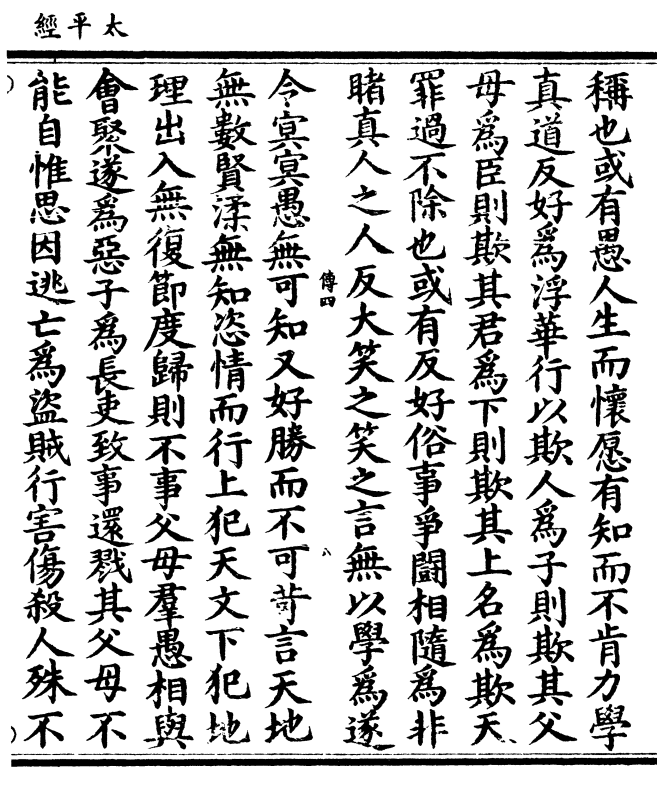 太平經
稱也或有愚人生而懷愿有知而不肯力學
真道反好為浮華行以欺人為子則欺其父
母為臣則欺其君為下則欺其上名為欺天
罪過不除也或有反好俗事爭鬪相隨為非
睹真人之人反大笑之笑之言無以學為遂
傳四
八
令冥冥愚無可知又好勝而不可苛言天地
無數賢渘無知恣情而行上犯天文下犯地
理出入無復節度歸則不事父母羣愚相與
會聚遂為惡子為長吏致事還戮其父母不
能自惟思因逃亡為盜賊行害傷殺人殊不